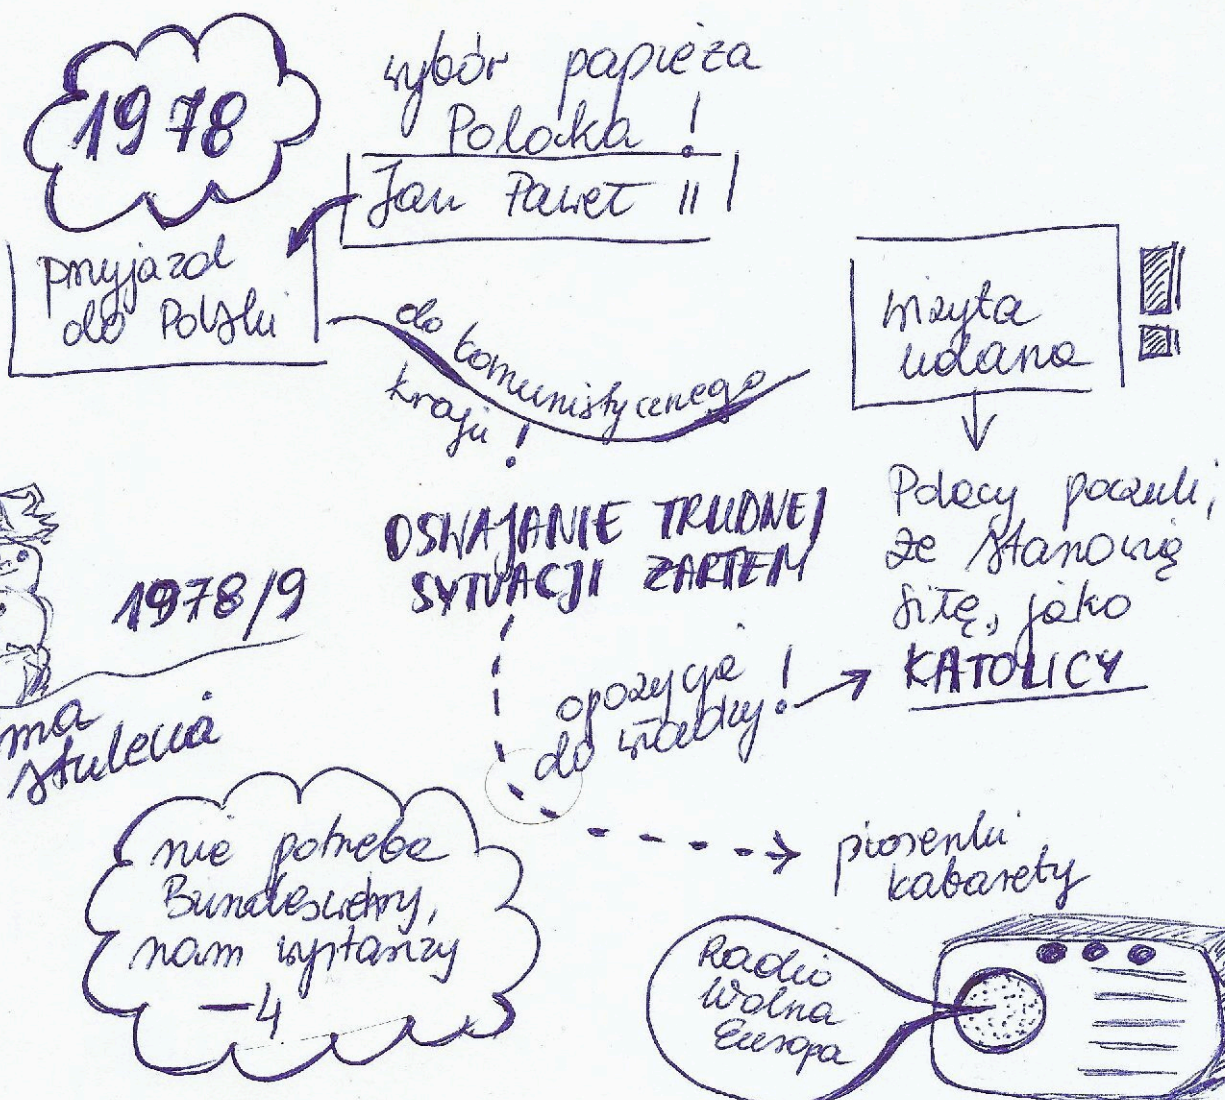 1978
wybór papieża
Polaka!
Jan Paweł II
przyjazd
do Polski
do komunistycznego
kraju!
wizyta
udana
Polacy poczuli,
że stanowią
siłę, jako
KATOLICY
OSWAJANIE TRUDNEJ
SYTUACJI ŻARTEM
1978/9
ma
stulecia
opozycja
do władzy!
nie potrzeba
Bundeswehry,
nam wystarczy
-4
piosenki
kabarety
Radio
Wolna
Europa